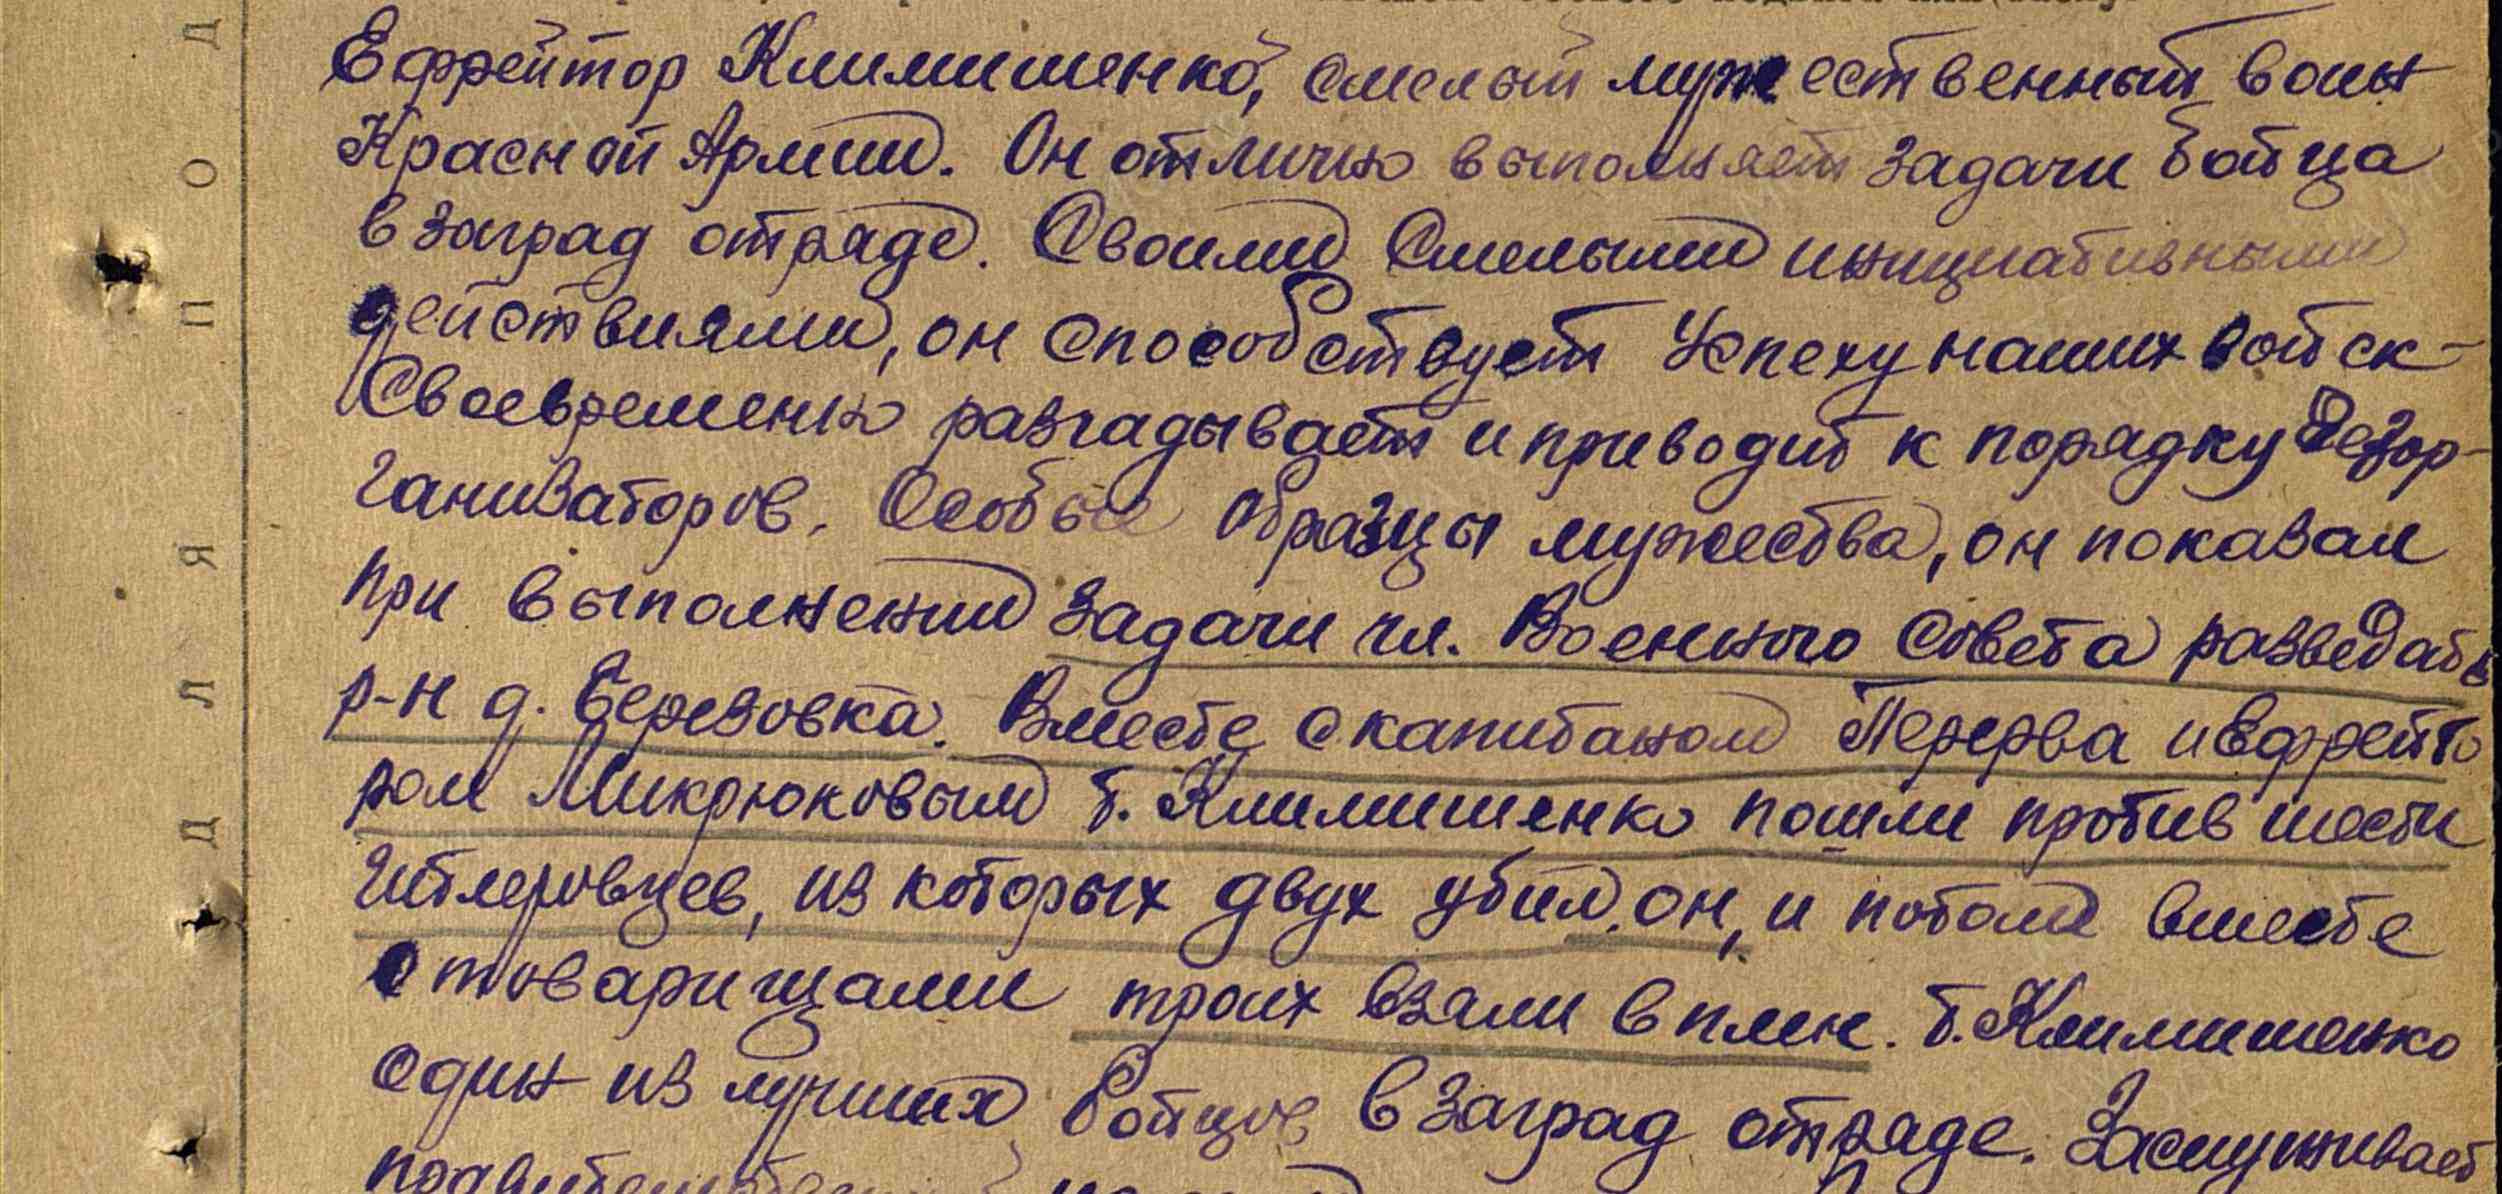 Ефрейтор Климишенко, смелый мужественный воин
Красной Армии. Он отлично выполняет задачи бойца
в заград отряде. Своими Смелыми инициативными
действиями, он способствует Успеху наших войск-
Своевременно разгадывает и приводит к порядку Дезор-
ганизаторов. Особые образцы мужества, он показал
при выполнении задачи чл. Военного Совета разведать
р-н д. Березовка. Вместе с капитаном Перерва и Ефрейто
ром Микрюковым т. Климишенко пошли против шести
гитлеровцев, из которых двух убил, он, и потом вместе
с товарищами троих взяли в плен. т. Климишенко
один из лучших бойцов в заград отряде. Заслуживает
правительственной
Д Л Я П О Д